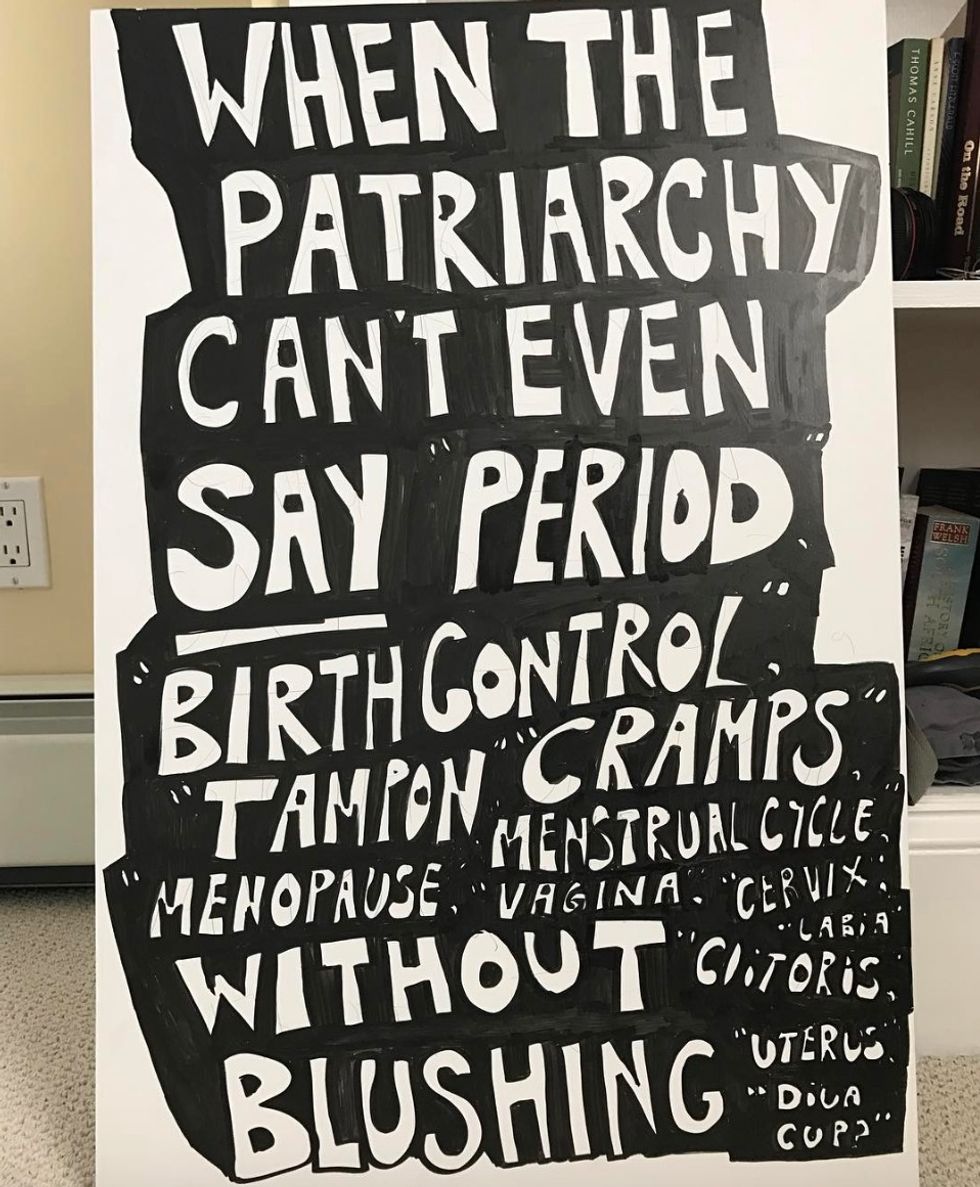 WHEN THE
PATRIARCHY
CAN'T EVEN
SAY "PERIOD."
"BIRTH CONTROL."
"TAMPON" "CRAMPS".
"MENSTRUAL CYCLE."
"MENOPAUSE." "VAGINA." "CERVIX".
"LABiA"
WITHOUT "CliTORiS."
BLUSHING "UTERUS."
"DiVA
CUP?"
THOMAS CAHILL
On the Road
FRANK
WELSH